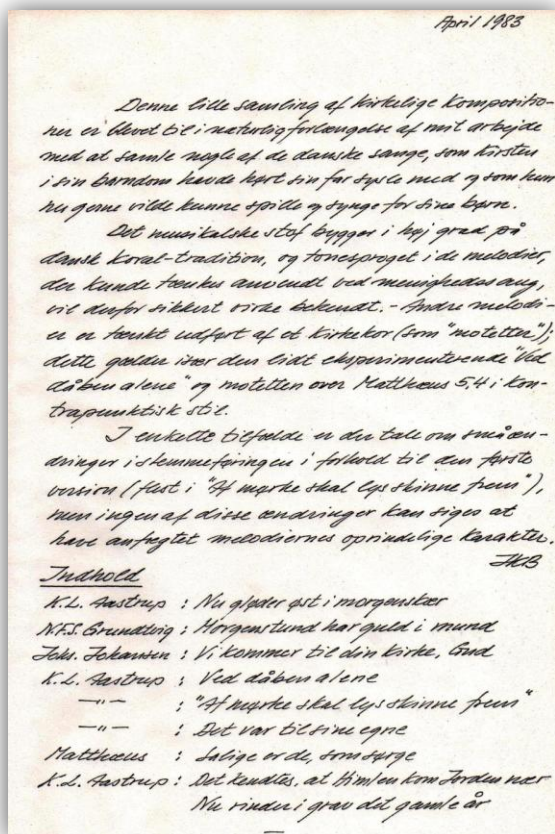 April 1983
Denne lille samling af kirkelige kompositio-
ner er blevet til i naturlig forlængelse af mit arbejde
med at samle nogle af de danske sange, som Kirsten
i sin barndom havde hørt sin far sysle med og som hun
nu gerne vilde kunne spille og synge for sine børn.
Det musikalske stof bygger i høj grad på
dansk koral-tradition, og tonesproget i de melodier,
der kunde tænkes anvendt ved menighedssang,
vil derfor sikkert virke bekendt. - Andre melodi-
er er tænkt udført af et kirkekor (som "motetter");
dette gælder især den lidt eksperimenterende "Ved
dåben alene" og motetten over Matthæus 5,4 i kon-
trapunktisk stil.
I enkelte tilfælde er der tale om småæn-
dringer i stemmeføringen i forhold til den første
version (flest i "Af mørke skal lys skinne frem"),
men ingen af disse ændringer kan siges at
have anfægtet melodiernes oprindelige karakter.
JKB
Indhold
K.L. Aastrup : Nu gløder øst i morgenskær
N.F.S. Grundtvig : Morgenstund har guld i mund
Johs. Johansen : Vi kommer til din kirke, Gud
K.L. Aastrup : Ved dåben alene
—"— : "Af mørke skal lys skinne frem"
—"— : Det var til sine egne
Matthæus : Salige er de, som sørge
K.L. Aastrup : Det kendtes, at Himlen kom Jorden nær
Nu rinder i grav det gamle år